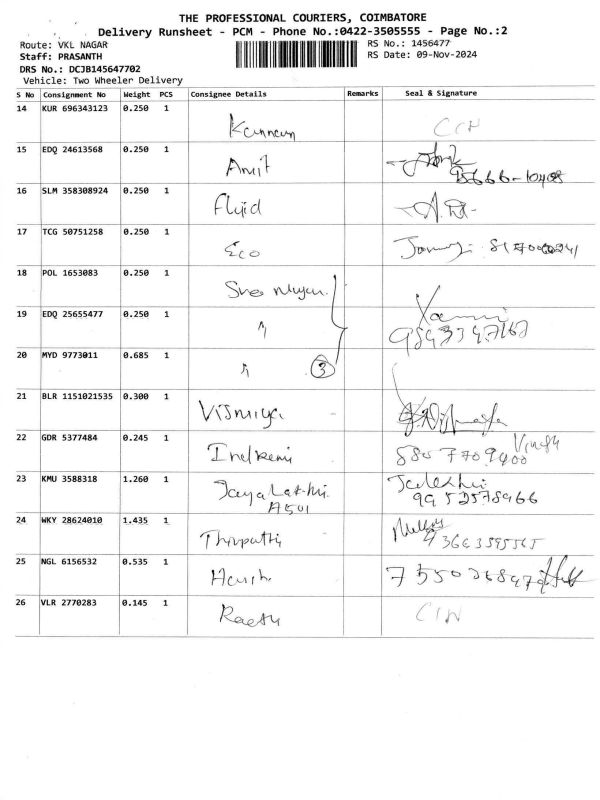 THE PROFESSIONAL COURIERS, COIMBATORE
Delivery Runsheet - PCM - Phone No.:0422-3505555 - Page No.:2
Route: VKL NAGAR
RS No.: 1456477
Staff: PRASANTH
RS Date: 09-Nov-2024
DRS No.: DCJB145647702
Vehicle: Two Wheeler Delivery
S No Consignment No Weight PCS Consignee Details Remarks Seal & Signature
14 KUR 696343123 0.250 1
Kannan
15 EDQ 24613568 0.250 1
Amit
16 SLM 358308924 0.250 1
Fluid
17 TCG 50751258 0.250 1
Eco
18 POL 1653083 0.250 1
19 EDQ 25655477 0.250 1
"
9843347167
20 MYD 9773011 0.685 1
" 3
21 BLR 1151021535 0.300 1
22 GDR 5377484 0.245 1
23 KMU 3588318 1.260 1
A501
9952578966
24 WKY 28624010 1.435 1
Thirpathi
25 NGL 6156532 0.535 1
26 VLR 2770283 0.145 1